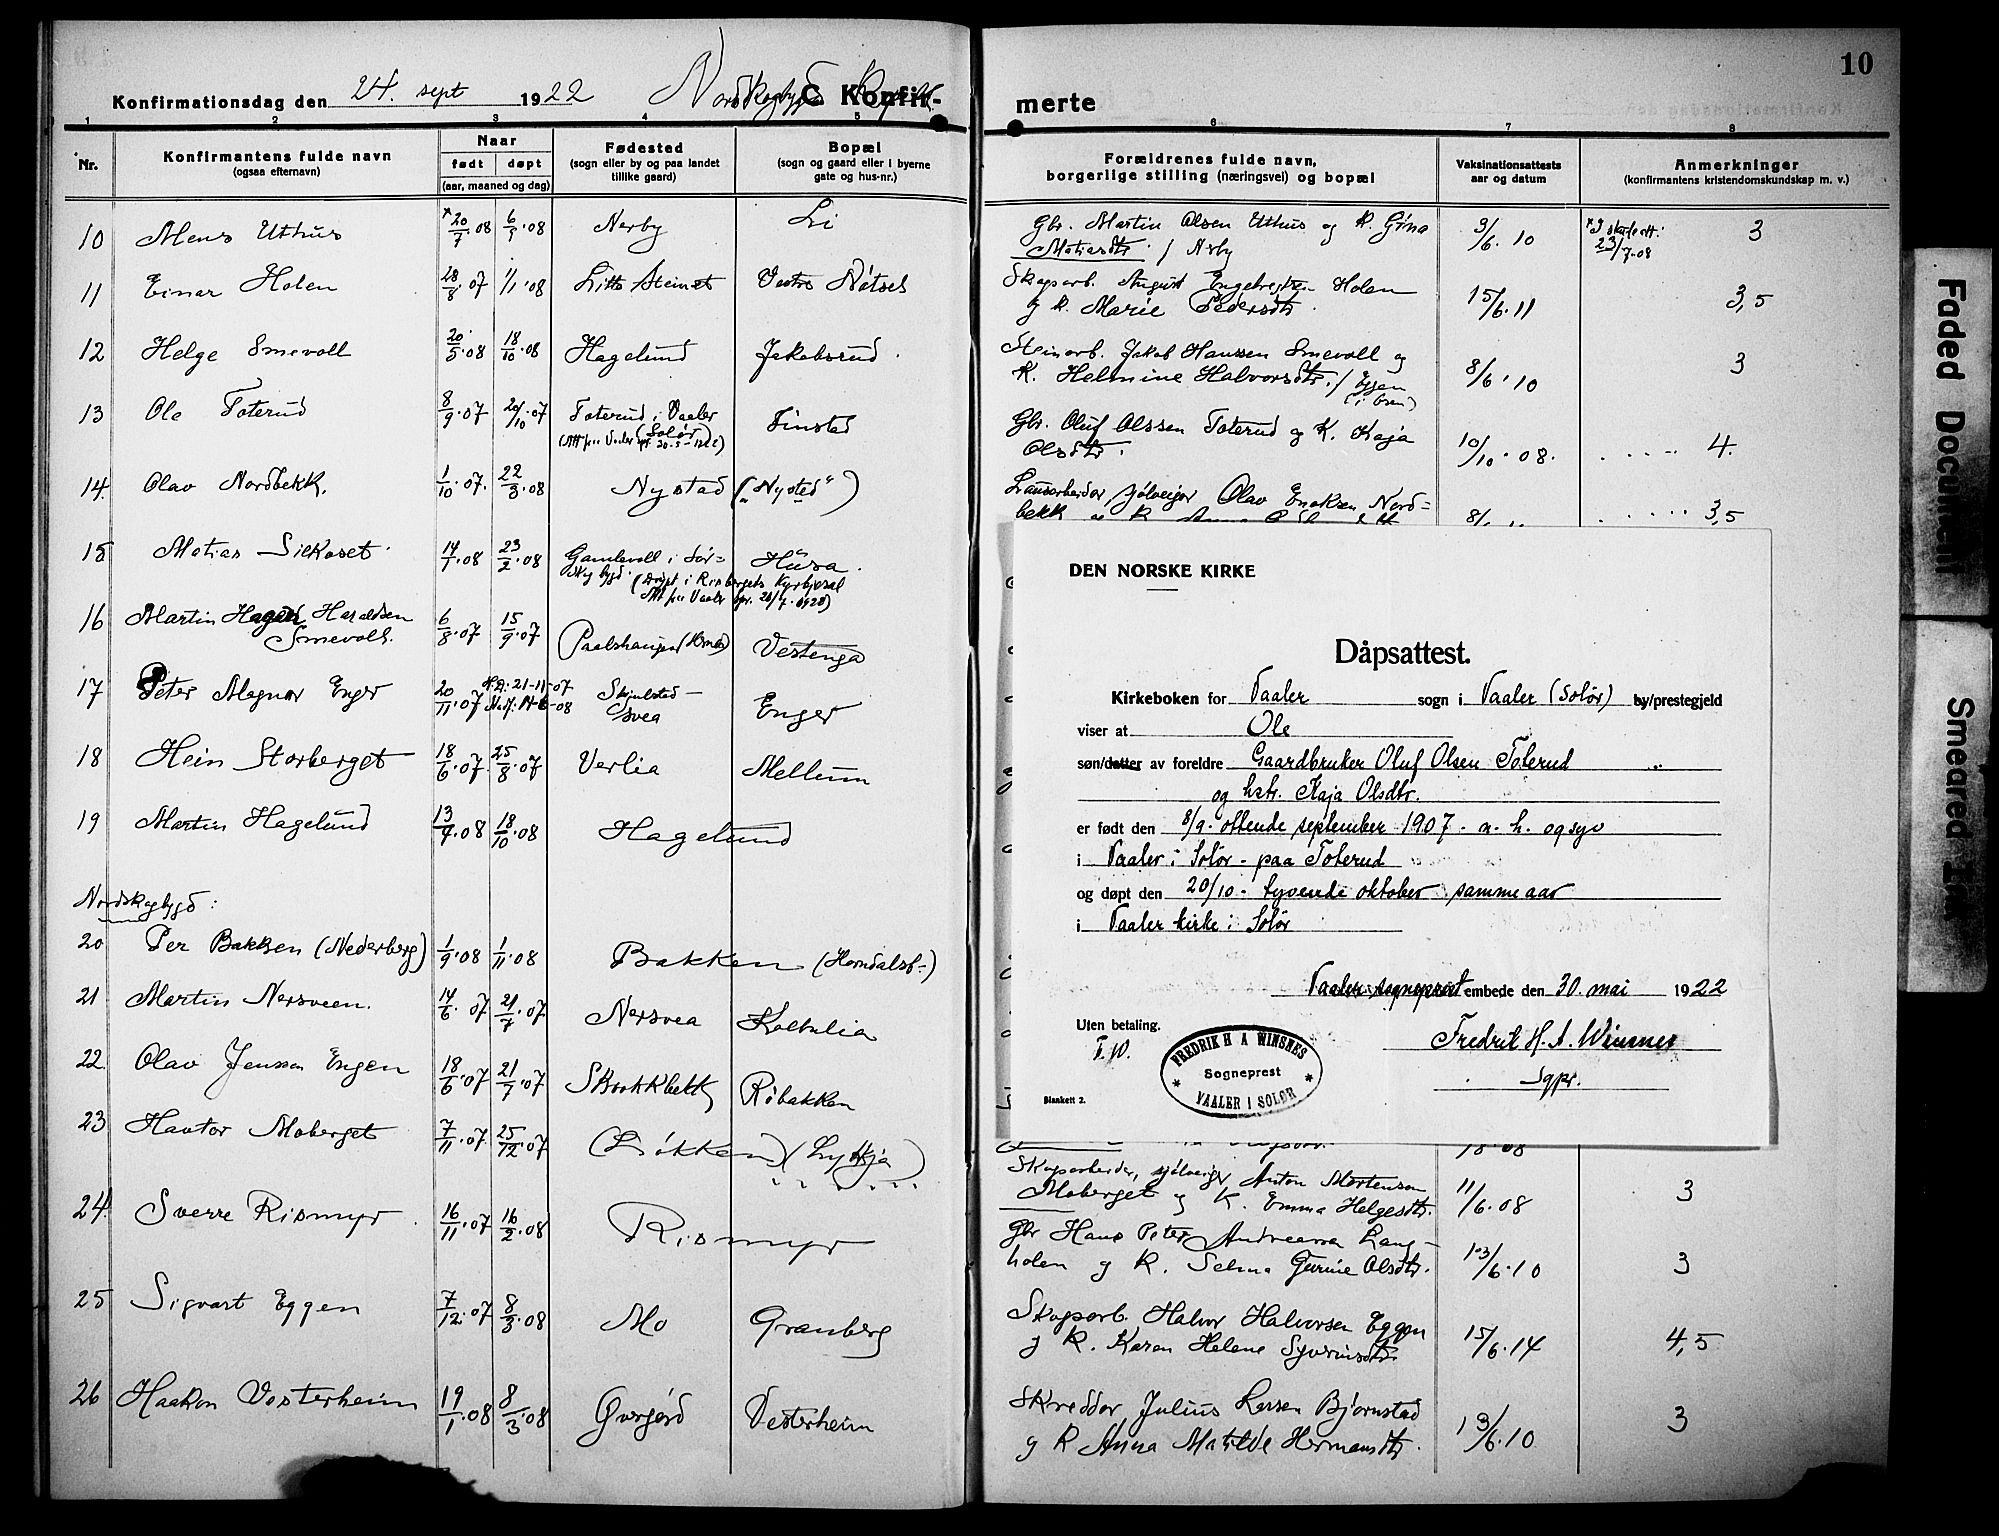 10
Konfirmationsdag den 24. sept 1922 Nordskogbygd
C Konfir-
merte
1 2 3 4 5 6 7 8
Nr.
Konfirmantens fulde navn
(ogsaa efternavn)
Naar
født døpt
(aar, maaned og dag)
Fødested
(sogn eller by og paa landet
tillike gaard)
Bopæl
(sogn og gaard eller i byerne
gate og hus-nr.)
Forældrenes fulde navn,
borgerlige stilling (næringsvei) og bopæl
Vaksinationsattests
aar og datum
Anmerkninger
(konfirmantens kristendomskundskap m. v.)
10 Mens Uthus 20/7.08 6/9.08 Nerby Li
Gbr. Martin Olsen Uthus og K. Gina 3/6.10 3
Matiasdtr. / Nerby 23/7-08
11 Einar Holen 28/8.07 1/1.08 Vestre
Skogsarb. August Engebretsen Holen
og K. Marie Pedersdtr. 15/6.11 3,5
12 Helge Smevoll 20/5.08 18/10.08 Hagelund Jakobsrud.
Steinarb. Jakob Hanssen Smevoll og
K. Helmine Halvorsdtr. / Eggen 8/6.10 3
(i Osen)
13 Ole Toterud 8/9.07 20/10.07 Toterud i Vaaler Finstad
(Solør)
Gbr. Oluf Olssen Toterud og K. Kaja
Olsdtr. 10/10.08. 4.
14. Olav Nordbekk. 1/10.07. 22/3.08 Nystad ("Nysted")
Olav Enoksen Nord-
bekk 3,5
15 Matias Silkoset 14/1.08 23/2.08 Gamlevoll i Sør- Husa.
skogbygd. (Døpt i Risbergets
16 Martin Hagen Haraldsen
Smevoll. 6/8.07 15/9.07 Paalshaugen Vestenga
17 Peter Magnar Enger 20/11.07 H.D: 21-11-07 Skjulstad- Enger
svea
18 Hein Storberget 18/6.07. 25/8.07 Verlia Mellum
19 Martin Hagelund 13/7.08 18/10.08 Hagelund
Nordskogbygd:
20 Per Bakken (Nederberg) 1/9.08 1/11.08 Bakken (Horndalsb-)
21 Martin Nersveen. 14/6.07 21/7.07 Nersvea Koltulia
22 Olav Jensen Engen 18/6.07 21/7.07 Skrokkbekk Røbakken
23 Havtor Moberget 7/11.07 25/12.07 Løkken (Lykkja)
24. Sverre Rismyr 16/11.07 16/2.08 Rismyr
25 Sigvart Eggen 7/12.07 8/3.08 Mo Granberg
26 Haakon Vesterheim 19/1.08 8/3.08 Øvergård Vesterheim
DEN NORSKE KIRKE
Dåpsattest.
Kirkeboken for Vaaler sogn i Vaaler (Solør) by/prestegjeld
viser at Ole
søn/datter av foreldre Gaardbruker Oluf Olsen Toterud
og hstr. Kaja Olsdtr.
er født den 8/9 - ottende september 1907 - n. h. og syv
i Vaaler i Solør - paa Toterud
og døpt den 20/10 - tyvende oktober samme aar
i Vaaler kirke i Solør
Vaaler sogneprest embede den 30. mai 1922
Uten betaling.
Fredrik H. A. Winsnes
Sgpr.
FREDRIK H A WINSNES
Sogneprest
VAALER I SOLØR
Blankett 2.
18.08
Skogsarbeider, sjølveiger, Anton Mortensen
Moberget og K. Emma Helgesdtr. 11/6.08 3
Gbr Hans Peter Andreassen Lang-
holen og K. Selma Gurine Olsdtr. 13/6.10 3
Skogsarb. Halvor Halvorsen Eggen
og K. Karen Helene Syverinsdtr. 15/6.14 4,5
Skreddar Julius Larsen Bjørnstad
og K Anna Matilde Hermansdtr. 13/6.10 3
Faded Document
Smeared Ink